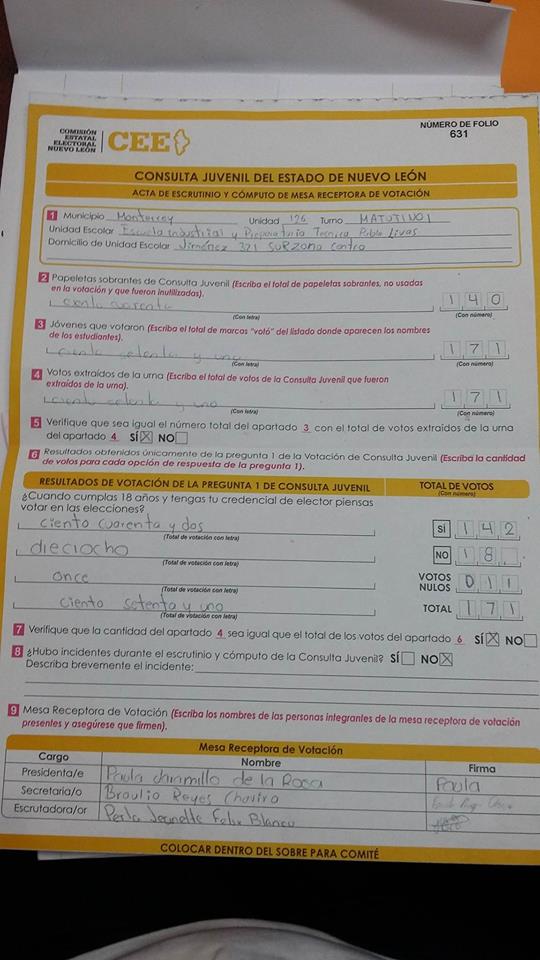 COMISIÓN
ESTATAL
ELECTORAL
NUEVO LEÓN
CEE
NÚMERO DE FOLIO
631
CONSULTA JUVENIL DEL ESTADO DE NUEVO LEÓN
ACTA DE ESCRUTINIO Y CÓMPUTO DE MESA RECEPTORA DE VOTACIÓN
1 Municipio Monterrey Unidad 126 Turno MATUTINO1
Unidad Escolar Escuela industrial y Preparatoria Tecnica Pablo Livas
Domicilio de Unidad Escolar Jiménez 321 SUR Zona Centro
2 Papeletas sobrantes de Consulta Juvenil (Escriba el total de papeletas sobrantes, no usadas
en la votación y que fueron inutilizadas).
ciento cuarenta 140
(Con letra) (Con número)
3 Jóvenes que votaron (Escriba el total de marcas "votó" del listado donde aparecen los nombres
de los estudiantes).
ciento setenta y uno 171
(Con letra) (Con número)
4 Votos extraídos de la urna (Escriba el total de votos de la Consulta Juvenil que fueron
extraídos de la urna).
ciento setenta y uno 171
(Con letra) (Con número)
5 Verifique que sea igual el número total del apartado 3 con el total de votos extraídos de la urna
del apartado 4 SÍ X NO
6 Resultados obtenidos únicamente de la pregunta 1 de la Votación de Consulta Juvenil (Escriba la cantidad
de votos para cada opción de respuesta de la pregunta 1).
RESULTADOS DE VOTACIÓN DE LA PREGUNTA 1 DE CONSULTA JUVENIL TOTAL DE VOTOS
(Con número)
¿Cuando cumplas 18 años y tengas tu credencial de elector piensas
votar en las elecciones?
ciento cuarenta y dos SÍ 142
(Total de votación con letra)
dieciocho NO 18
(Total de votación con letra)
once VOTOS NULOS 011
(Total de votación con letra)
ciento setenta y uno TOTAL 171
(Total de votación con letra)
7 Verifique que la cantidad del apartado 4 sea igual que el total de los votos del apartado 6 SÍ X NO
8 ¿Hubo incidentes durante el escrutinio y cómputo de la Consulta Juvenil? SÍ NO X
Describa brevemente el incidente:
9 Mesa Receptora de Votación (Escriba los nombres de las personas integrantes de la mesa receptora de votación
presentes y asegúrese que firmen).
Mesa Receptora de Votación
Cargo Nombre Firma
Presidenta/e Paula Jaramillo de la Rosa Paula
Secretaria/o Braulio Reyes
Escrutadora/or Perla Jeanette Felix Blanco
COLOCAR DENTRO DEL SOBRE PARA COMITÉ